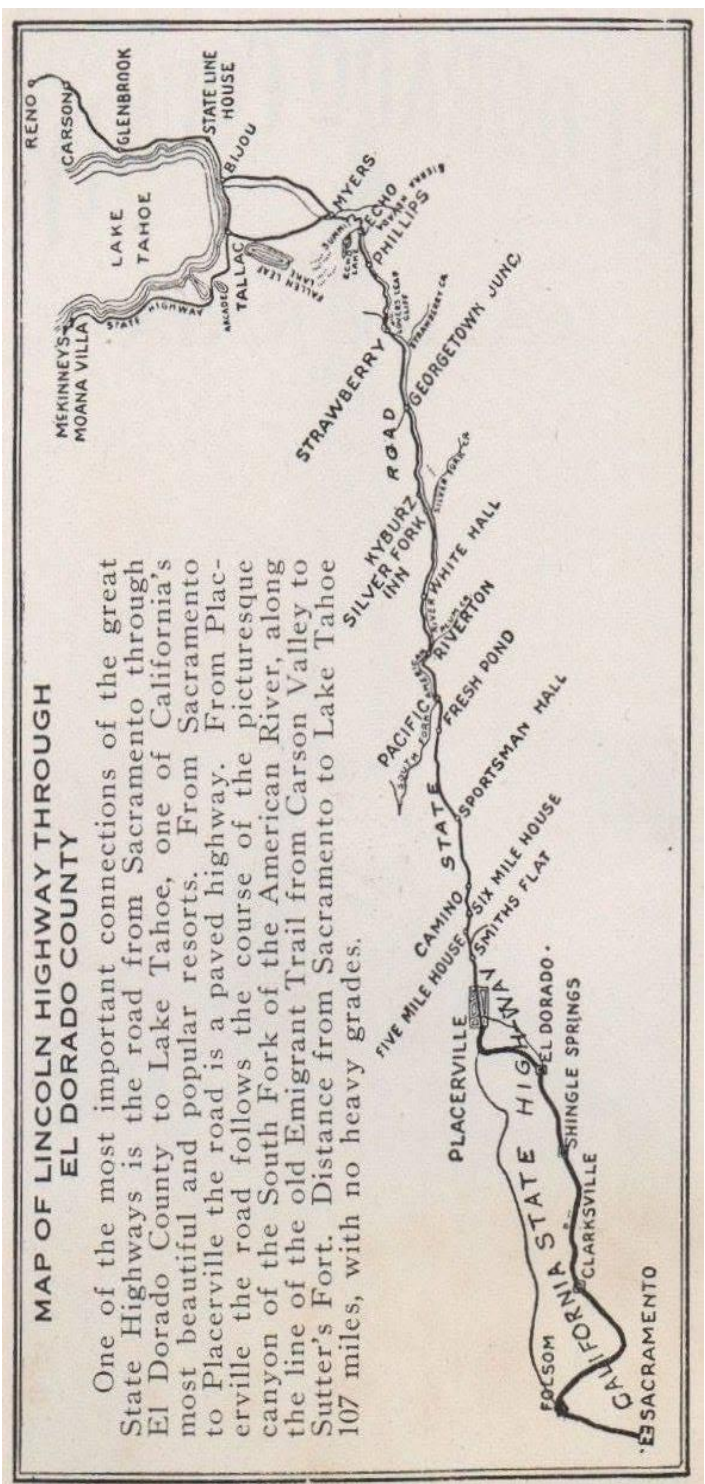 MAP OF LINCOLN HIGHWAY THROUGH
EL DORADO COUNTY
One of the most important connections of the great
State Highways is the road from Sacramento through
El Dorado County to Lake Tahoe, one of California's
most beautiful and popular resorts. From Sacramento
to Placerville the road is a paved highway. From Plac-
erville the road follows the course of the picturesque
canyon of the South Fork of the American River, along
the line of the old Emigrant Trail from Carson Valley to
Sutter's Fort. Distance from Sacramento to Lake Tahoe
107 miles, with no heavy grades.
SACRAMENTO
FOLSOM
CALIFORNIA STATE HIGHWAY
CLARKSVILLE
SHINGLE SPRINGS
EL DORADO
PLACERVILLE
FIVE MILE HOUSE
SMITHS FLAT
SIX MILE HOUSE
CAMINO
SPORTSMAN HALL
STATE ROAD
FRESH POND
PACIFIC
SOUTH FORK AMERICAN RIVER
RIVERTON
WHITE HALL
KYBURZ
SILVER FORK
INN
SILVER FORK CR
GEORGETOWN JUNC.
STRAWBERRY
STRAWBERRY CR
LOVERS LEAP
CLIFF
PHILLIPS
ECHO
ECHO
LAKE
SUMMIT
MYERS
FALLEN LEAF
LAKE
TALLAC
STATE HIGHWAY
MEKINNEYS
MOANA VILLA
LAKE
TAHOE
BIJOU
STATE LINE
HOUSE
GLENBROOK
CARSON
RENO